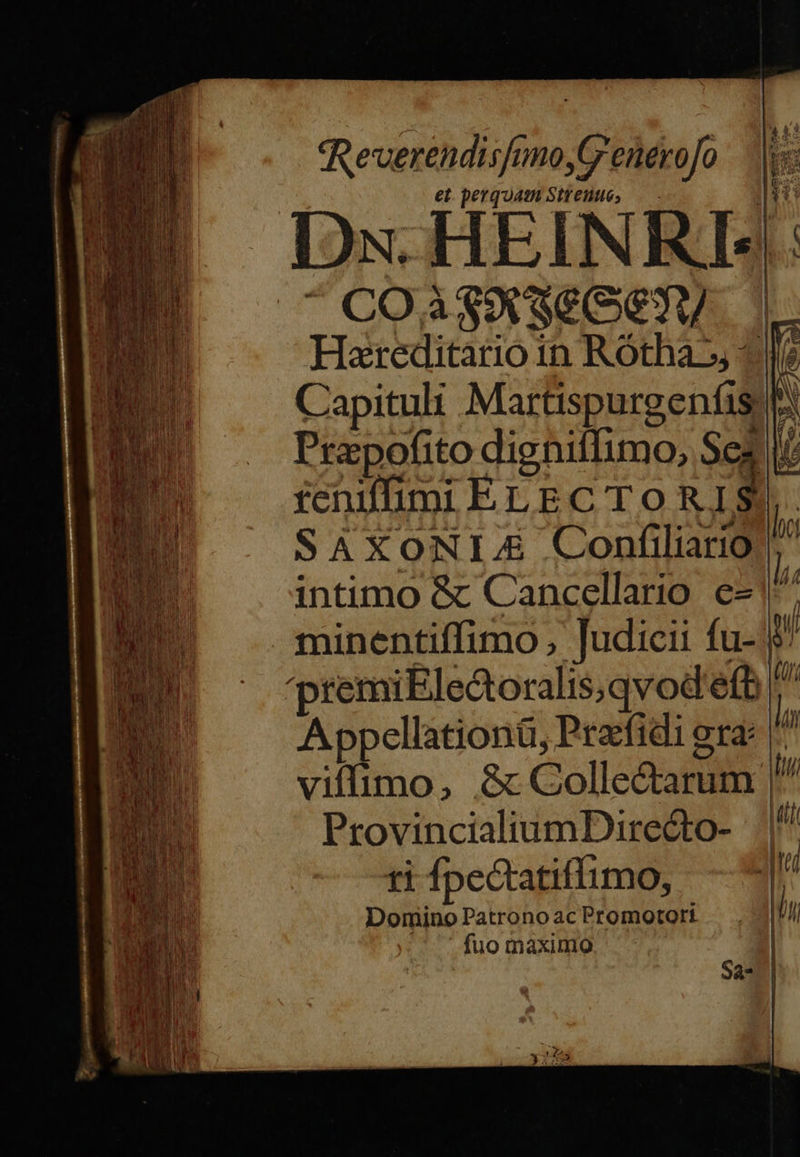 Reverendisſimo, Generoſo
et perqvam Strenuo,
Dn. HEINRI-
CO à FRIESEN/
Hæreditario in Rötha,
Capituli Martispurgenſis
Præpoſito digniſſimo, Se-
reniſſimi ELECTORIS
SAXONIÆ Conſiliario
intimo & Cancellario e-
minentiſſimo, Judicii ſu-
premi Electoralis, qvod eſt
Appellationū, Præſidi gra-
viſſimo, & Collectarum
Provincialium Directo-
ri ſpectatiſſimo,
Domino Patrono ac Promotori
ſuo maximo
Sa-